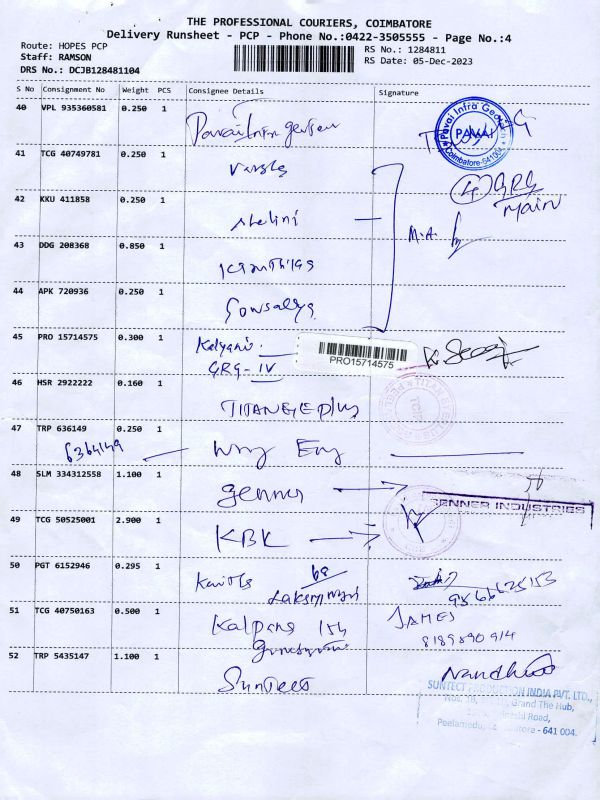 THE PROFESSIONAL COURIERS, COIMBATORE
Delivery Runsheet - PCP - Phone No.:0422-3505555 - Page No.:4
Route: HOPES PCP
RS No.: 1284811
Staff: RAMSON
RS Date: 05-Dec-2023
DRS No.: DCJB128481104
S No Consignment No Weight PCS Consignee Details Signature
40 VPL 935360581 0.250 1
Pavai Infra Geotech
PAVAI
Coimbatore-641004
41 TCG 40749781 0.250 1
Varsha
4 GRG
Main
42 KKU 411858 0.250 1
Shalini
M.A.
43 DDG 208368 0.850 1
44 APK 720936 0.250 1
Gowsalya
45 PRO 15714575 0.300 1 Kalyani
PRO15714575
GRG-IV
46 HSR 2922222 0.160 1
TITAN EYE plus
47 TRP 636149 0.250 1
6364149
48 SLM 334312558 1.100 1
genner
GENNER INDUSTRIES
49 TCG 50525001 2.900 1
KBK
50 PGT 6152946 0.295 1
51 TCG 40750163 0.500 1
Kalpana
JAMES
8189890914
52 TRP 5435147 1.100 1
Suntect
SUNTECT PRODUCTION INDIA PVT. LTD.,
Grand The Hub,
Road,
Peelamedu, Coimbatore - 641 004.